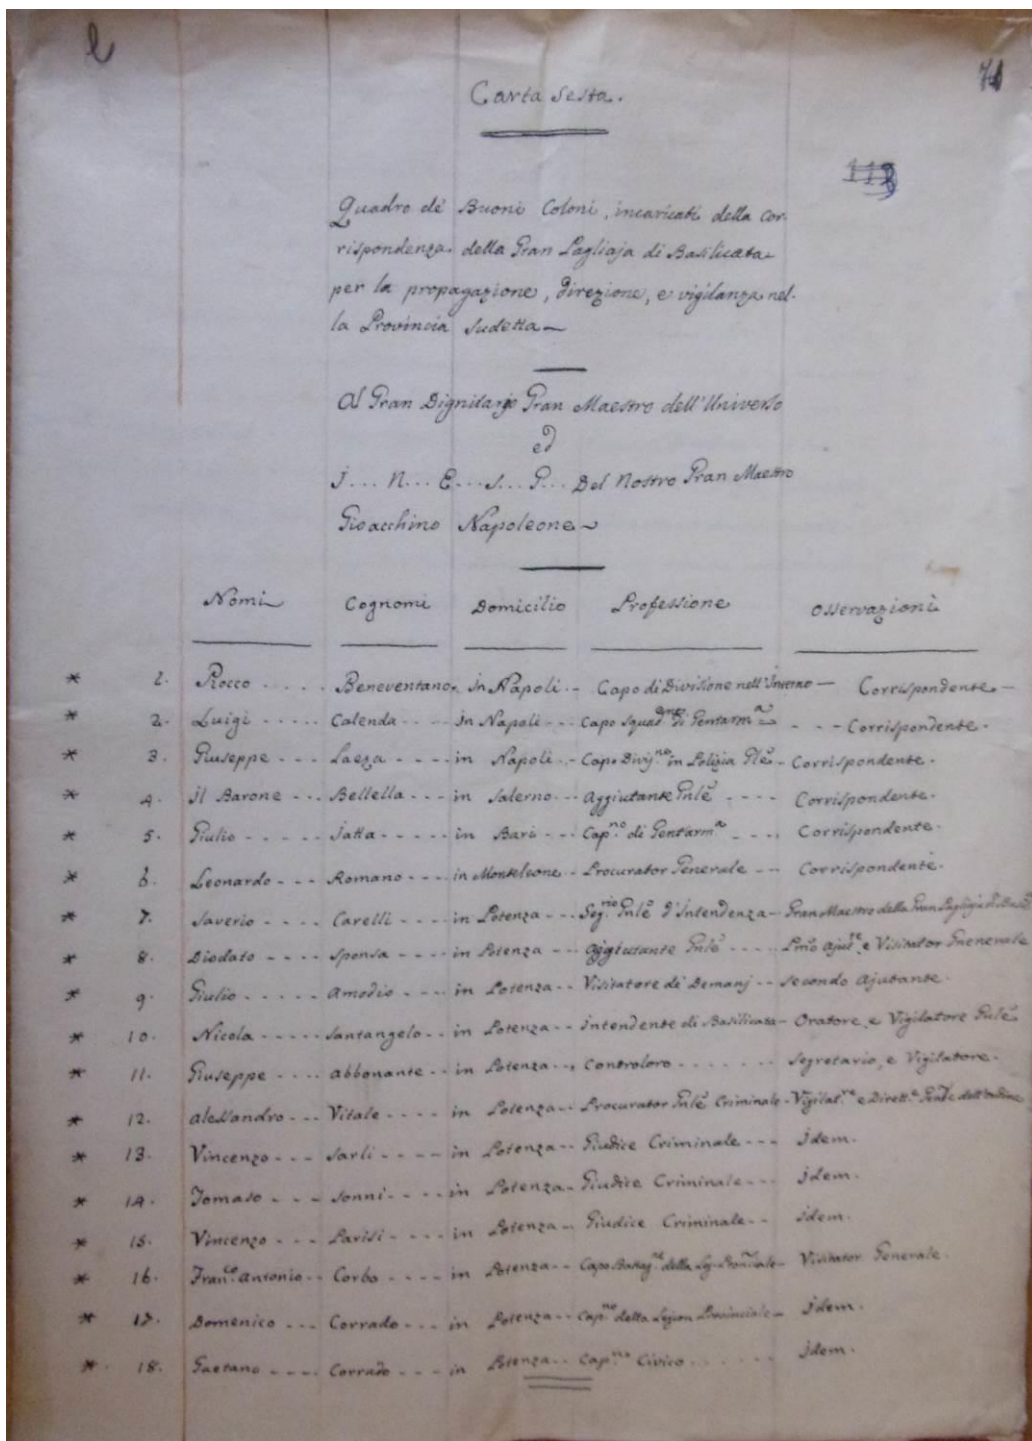 l
71
Carta Sesta.
113
Quadro de' Buoni Coloni, incaricati della cor-
rispondenza della Gran Pagliaja di Basilicata
per la propagazione, direzione, e vigilanza nel-
la Provincia sudetta
Al Gran Dignitario Gran Maestro dell'Universo
ed
J... N... E... S... G... Del Nostro Gran Maestro
Gioacchino Napoleone
Nomi Cognomi Domicilio Professione Osservazioni
* 1. Rocco .... Beneventano. in Napoli -- Capo di Divisione nell'Interno — Corrispondente —
* 2. Luigi ..... Calenda ---- in Napoli --- Capo Squadne di Gentarma - - - Corrispondente.
* 3. Giuseppe --- Laeza ---- in Napoli -- Capo Divi.no in Polizia Gle - Corrispondente.
* 4. il Barone --- Bellella --- in Salerno --- Aggiutante Gnle ---- Corrispondente.
* 5. Giulio ----- Jatta ----- in Bari --- Cap.no di Gentarm.a ---- Corrispondente.
* 6. Leonardo --- Romano ---- in Monteleone -- Procurator Generale --- Corrispondente.
* 7. Saverio ---- Carelli ---- in Potenza --- Seg.rio Gnle d'Intendenza - Gran Maestro della Gran Pagliaja di
* 8. Diodato ---- Sponsa ---- in Potenza --- Aggiutante Gnle ----- Pmo Ajut.e e Visitator Gnenerale
* 9. Giulio ----- Amodio ---- in Potenza -- Visitatore de' Demanj -- Secondo Ajutante.
* 10. Nicola ----- Santangelo -- in Potenza -- Intendente di Basilicata - Oratore, e Vigilatore Gnle
* 11. Giuseppe ---- Abbonante -- in Potenza -- Controloro ....... Segretario, e Vigilatore.
* 12. Alessandro --- Vitale ---- in Potenza -- Procurator Gnle Criminale - Vigilat.re e Dirett.e Gnle dell'ordine
* 13. Vincenzo --- Sarli ---- in Potenza -- Giudice Criminale --- Idem.
* 14. Tomaso --- Sonni ---- in Potenza - Giudice Criminale --- Idem.
* 15. Vincenzo --- Parisi ---- in Potenza -- Giudice Criminale -- Idem.
* 16. Fran.co Antonio -- Corbo ---- in Potenza -- Capo Battag.ne della Leg. - Visitator Generale.
* 17. Domenico --- Corrado --- in Potenza -- Cap.no della Legion Provinciale - Idem.
* 18. Gaetano ---- Corrado --- in Potenza -- Cap.no Civico ...... Idem.